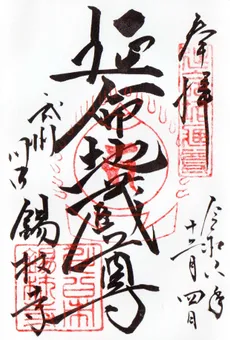 奉拝
令和六年
十二月四日
延命地蔵尊
武州川口
錫杖寺